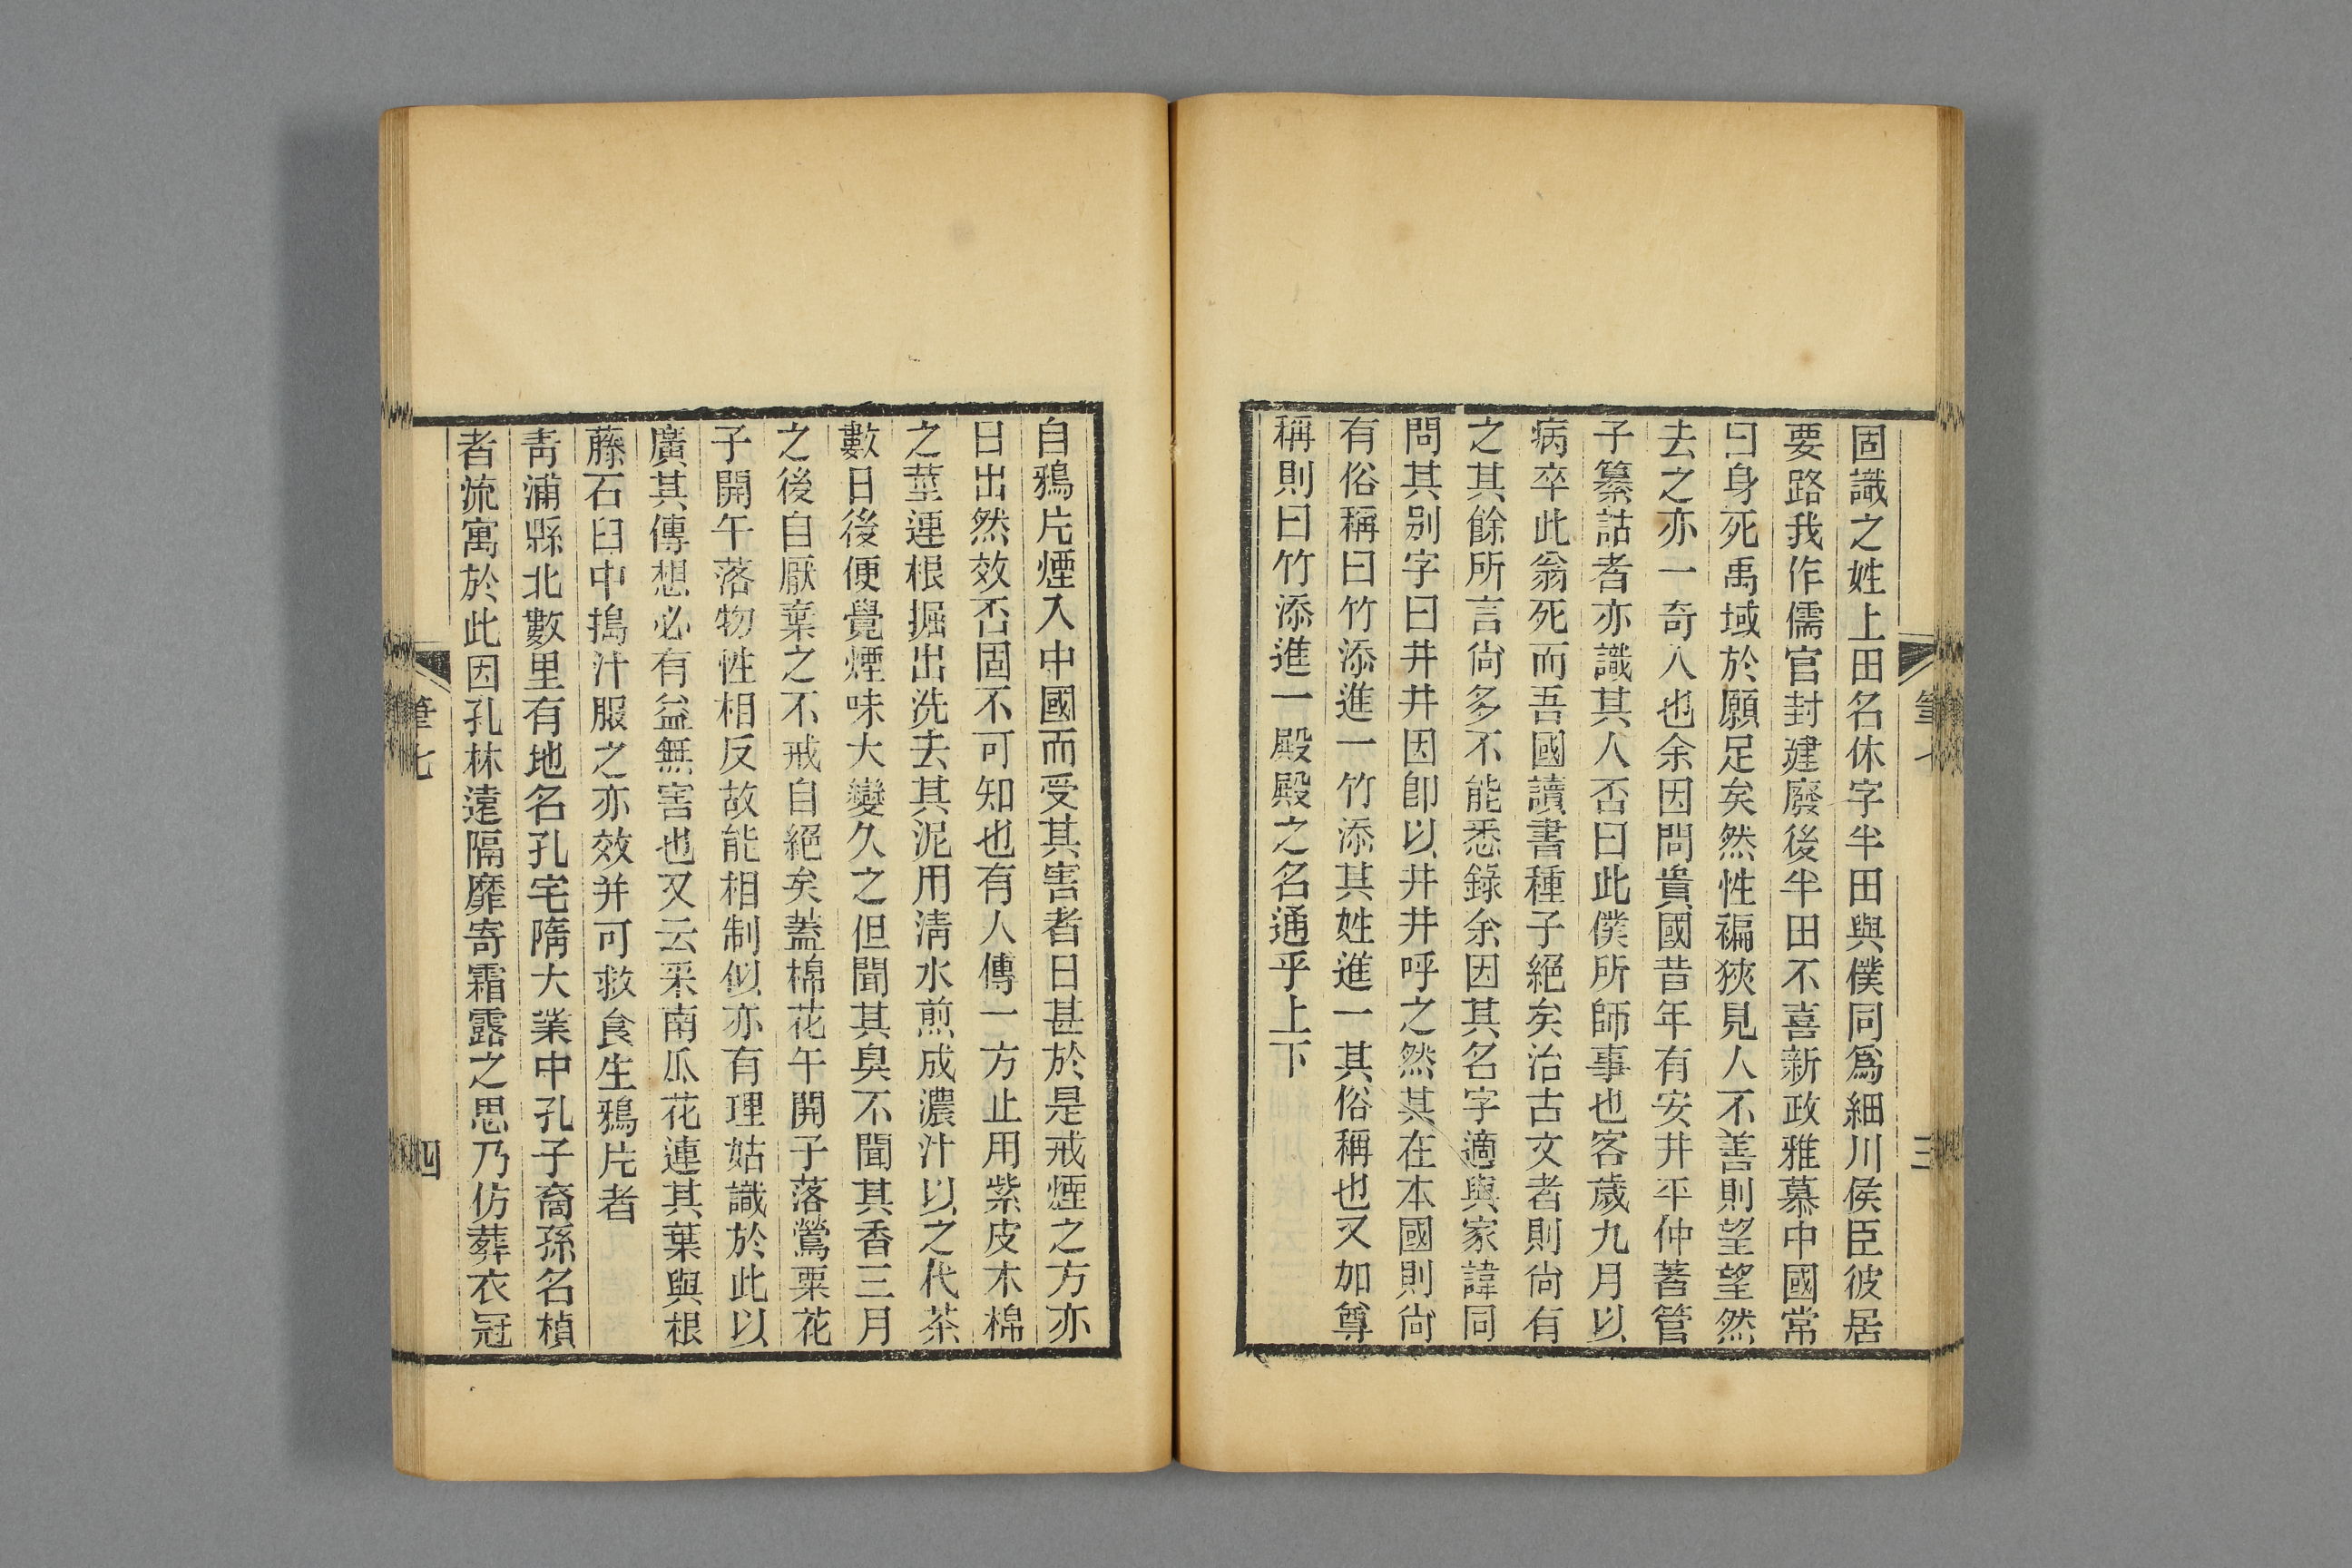 固識之姓上田名休字半田與僕同爲細川侯臣彼居
要路我作儒官封建廢後半田不喜新政雅慕中國常
曰身死禹域於願足矣然性褊狹見人不善則望望然
去之亦一奇人也余因問貴國昔年有安井平仲著管
子纂詁者亦識其人否曰此僕所師事也客歲九月以
病卒此翁死而吾國讀書種子絕矣治古文者則尙有
之其餘所言尙多不能悉錄余因其名字適與家諱同
問其别字曰井井因卽以井井呼之然其在本國則尙
有俗稱曰竹添進一竹添其姓進一其俗稱也又加尊
稱則曰竹添進一殿殿之名通乎上下
筆七
三
自鴉片煙入中國而受其害者日甚於是戒煙之方亦
日出然效否固不可知也有人傳一方止用紫皮木棉
之莖連根掘出洗去其泥用淸水煎成濃汁以之代茶
數日後便覺煙味大變久之但聞其臭不聞其香三月
之後自厭棄之不戒自絕矣蓋棉花午開子落鶯粟花
子開午落物性相反故能相制似亦有理姑識於此以
廣其傳想必有益無害也又云采南瓜花連其葉與根
藤石臼中搗汁服之亦效并可救食生鴉片者
靑浦縣北數里有地名孔宅隋大業中孔子裔孫名楨
者流寓於此因孔林遠隔靡寄霜露之思乃仿葬衣冠
筆七
四